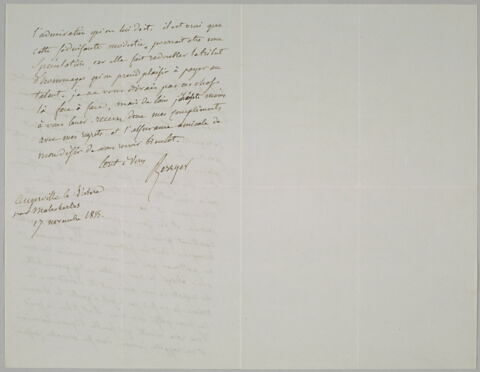 l'admiration qu'on lui doit. il est vrai que
cette séduisante modestie, pourrait être une
spéculation, car elle fait redoubler le tribut
d'hommages qu'on prend plaisir à payer au
talent. je ne vous dirais pas ces choses
là face à face, mais de loin j'hésite moins
à vous louer. recevez donc mes compliments
avec mes regrets et l'assurance amicale de
mon désir de vous revoir bientôt.
tout à vous
Berryer
Augerville la Rivière
par Malesherbes
17 novembre 1855.